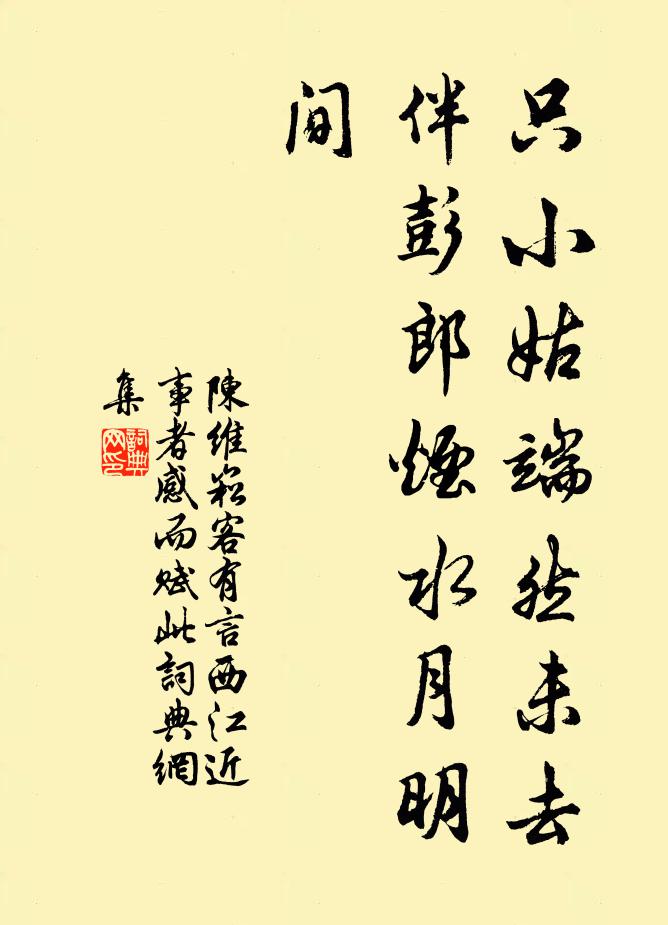 只小姑端然未去
伴彭郎煙水月明
间
陳維崧客有言西江近
事者感而赋此詞典網
集
詞典
网印